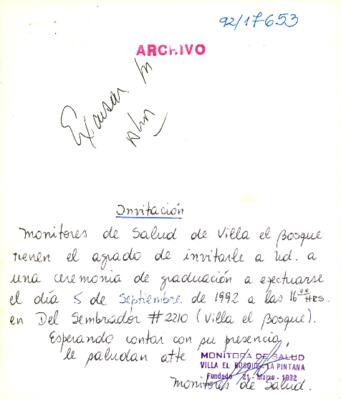 92/17653
ARCHIVO
Excusar
Invitación
Monitores de Salud de Villa el Bosque
tienen el agrado de invitarle a Ud. a
una ceremonia de graduación a efectuarse
el día 5 de Septiembre de 1992 a las 16 00 Hrs.
en Del Sembrador #2210 (Villa el Bosque).
Esperando contar con su presencia,
le saludan atte
MONITORA DE SALUD
VILLA EL BOSQUE LA PINTANA
Fundado 21 - Marzo - 1992
Monitores de Salud.